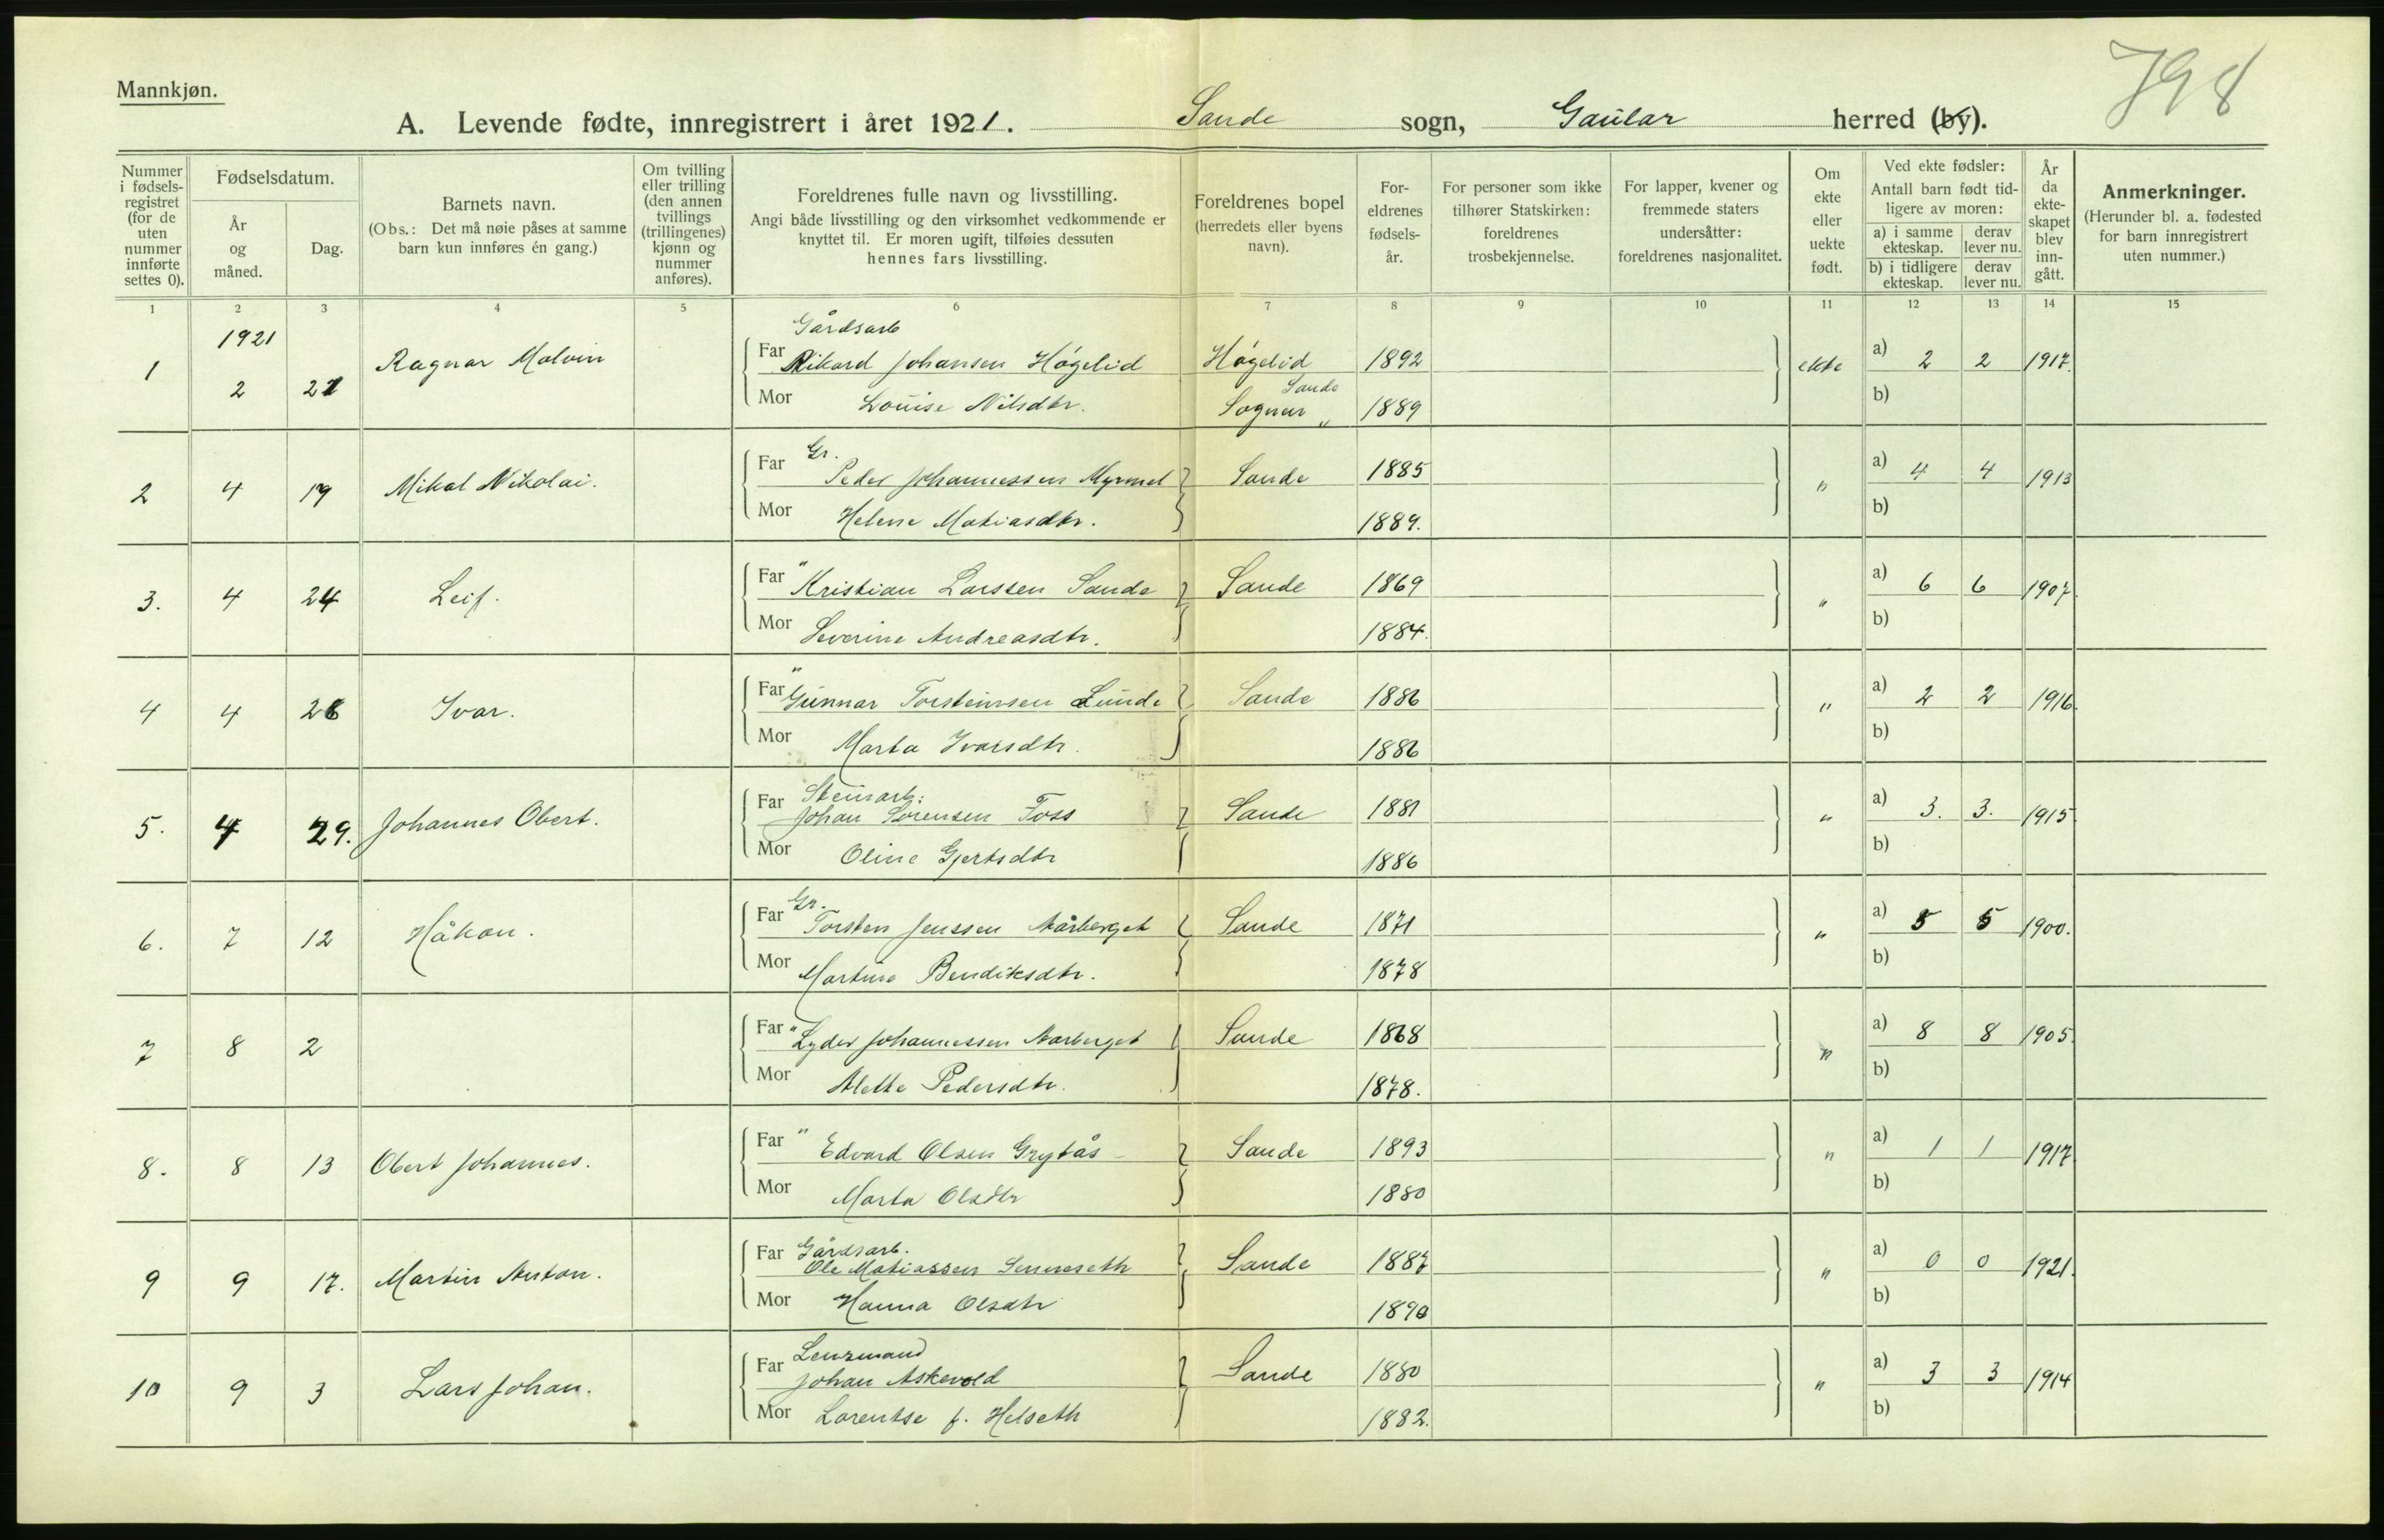 798
Mannkjøn.
A. Levende fødte, innregistrert i året 1921. Sande sogn, Gaular herred (by).
Nummer i fødsels-registret (for de uten nummer innførte settes 0).
Fødselsdatum.
År og måned.
Dag.
Barnets navn.
(Obs.: Det må nøie påses at samme barn kun innføres én gang.)
Om tvilling eller trilling (den annen tvillings (trillingenes) kjønn og nummer anføres).
Foreldrenes fulle navn og livsstilling.
Angi både livsstilling og den virksomhet vedkommende er knyttet til. Er moren ugift, tilføies dessuten hennes fars livsstilling.
Foreldrenes bopel (herredets eller byens navn).
For-eldrenes fødsels-år.
For personer som ikke tilhører Statskirken: foreldrenes trosbekjennelse.
For lapper, kvener og fremmede staters undersåtter: foreldrenes nasjonalitet.
Om ekte eller uekte født.
Ved ekte fødsler:
Antall barn født tid-ligere av moren:
a) i samme ekteskap. derav lever nu.
b) i tidligere ekteskap. derav lever nu.
År da ekte-skapet blev inn-gått.
Anmerkninger.
(Herunder bl. a. fødested for barn innregistrert uten nummer.)
1 2 3 4 5 6 7 8 9 10 11 12 13 14 15
1921 Gårdsarb
1 2 21 Ragnar Malvin Far Rikard Johansen Høgelid Høgelid 1892 ekte a) 2 2 1917.
Sande
Mor Louise Nilsdtr. Sognur " 1889 b)
Gr.
2 4 19 Mikal Nikolai. Far Peder Johannessen Myrmel Sande 1885 " a) 4 4 1913
Mor Helene Matiasdtr. 1889. b)
3. 4 24 Leif. Far " Kristian Larssen Sande Sande 1869 " a) 6 6 1907
Mor Severine Andreasdtr. 1884. b)
4 4 26 Ivar. Far " Gunnar Torsteinsen Lunde Sande 1886 " a) 2 2 1916
Mor Marta Ivarsdtr. 1886 b)
Steinarb:
5. 4 29. Johannes Obert. Far Johan Sørensen Foss Sande 1881 " a) 3. 3. 1915
Mor Oline Gjertsdtr 1886 b)
Gr.
6. 7 12 Håkon. Far Torsten Jenssen Aarberget Sande 1871 " a) 5 5 1900.
Mor Martine Bendiksdtr. 1878 b)
7 8 2 Far " Lyder Johannessen Aarberget Sande 1868 " a) 8 8 1905.
Mor Alette Pedersdtr. 1878. b)
8. 8 13 Obert Johannes. Far " Edvard Olsen Grytås Sande 1893 " a) 1 1 1917
Mor Marta Olsdtr 1880 b)
Gårdsarb.
9 9 17. Martin Anton. Far Ole Matiassen Senneseth Sande 1887 " a) 0 0 1921.
Mor Hanna Olsdtr 1890 b)
Lensmand
10 9 3 Lars Johan. Far Johan Askevold Sande 1880 " a) 3 3 1914
Mor Lorentse f. Helseth 1882. b)